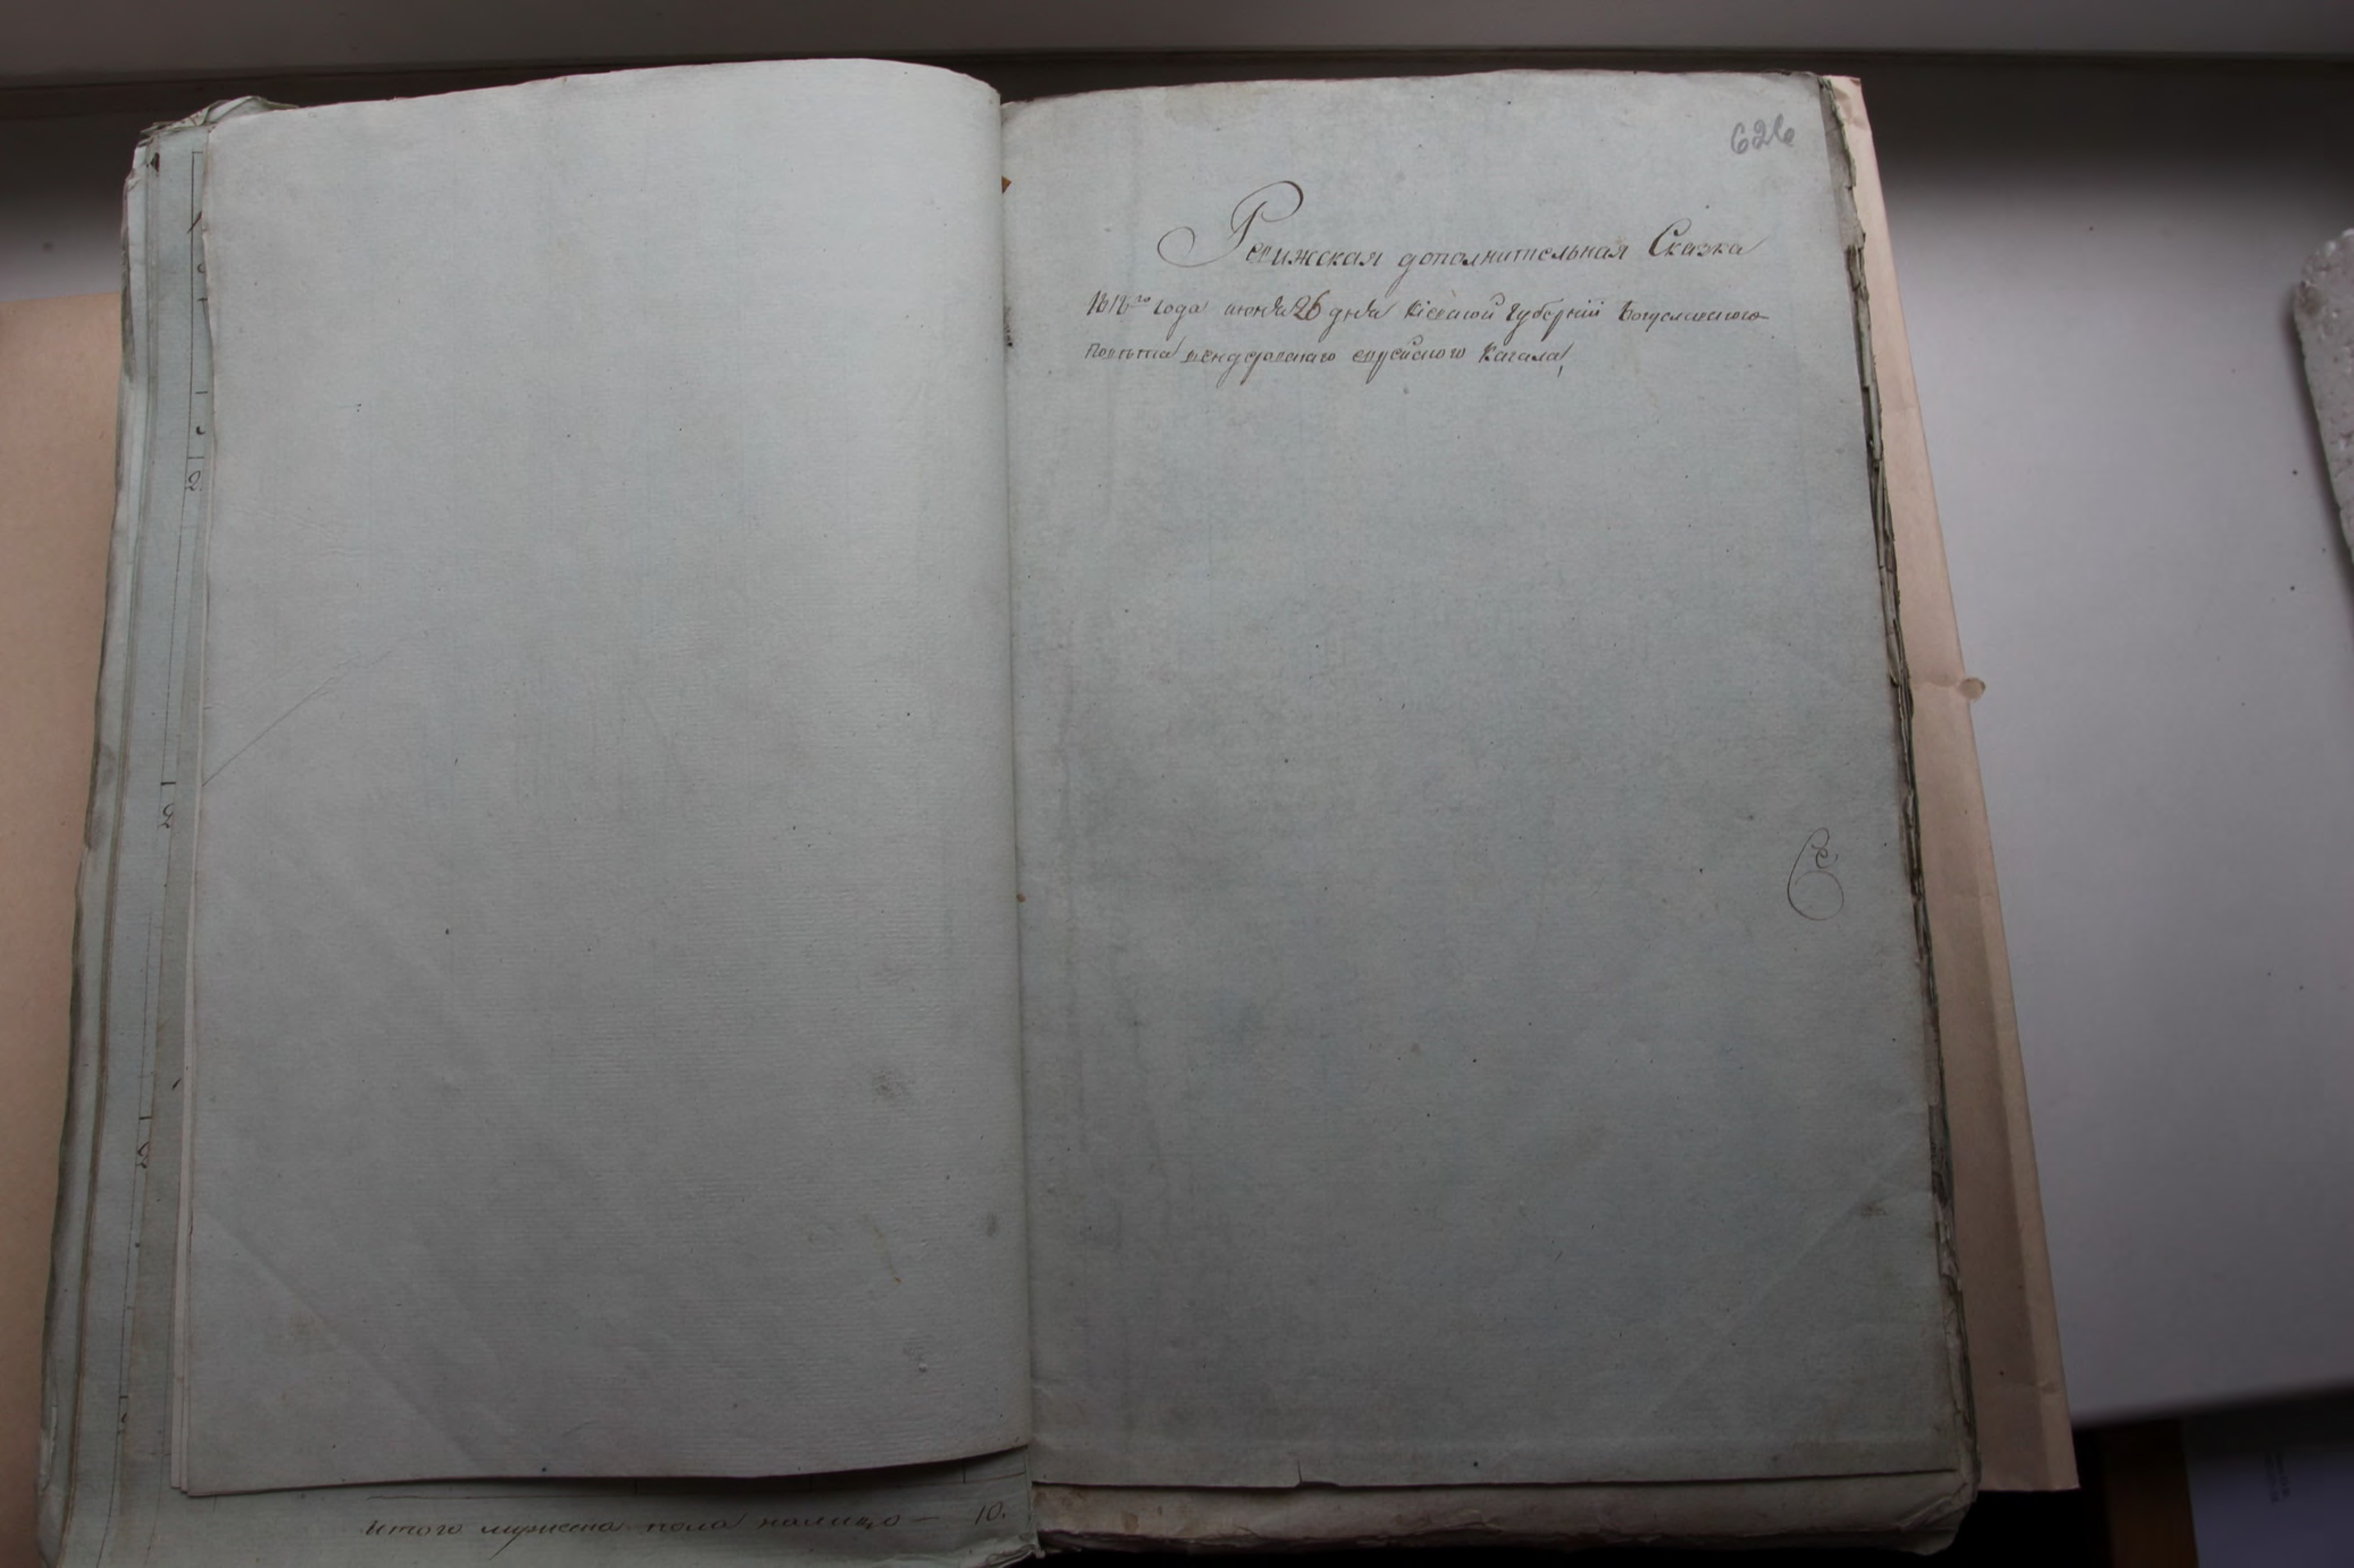 626
Ревижская дополнительная Сказка
1818го года июня 26 дня Кіевской Губерніи Богуславского
Повѣта еврейского Кагала,
итого мужеска пола налицо — 10.